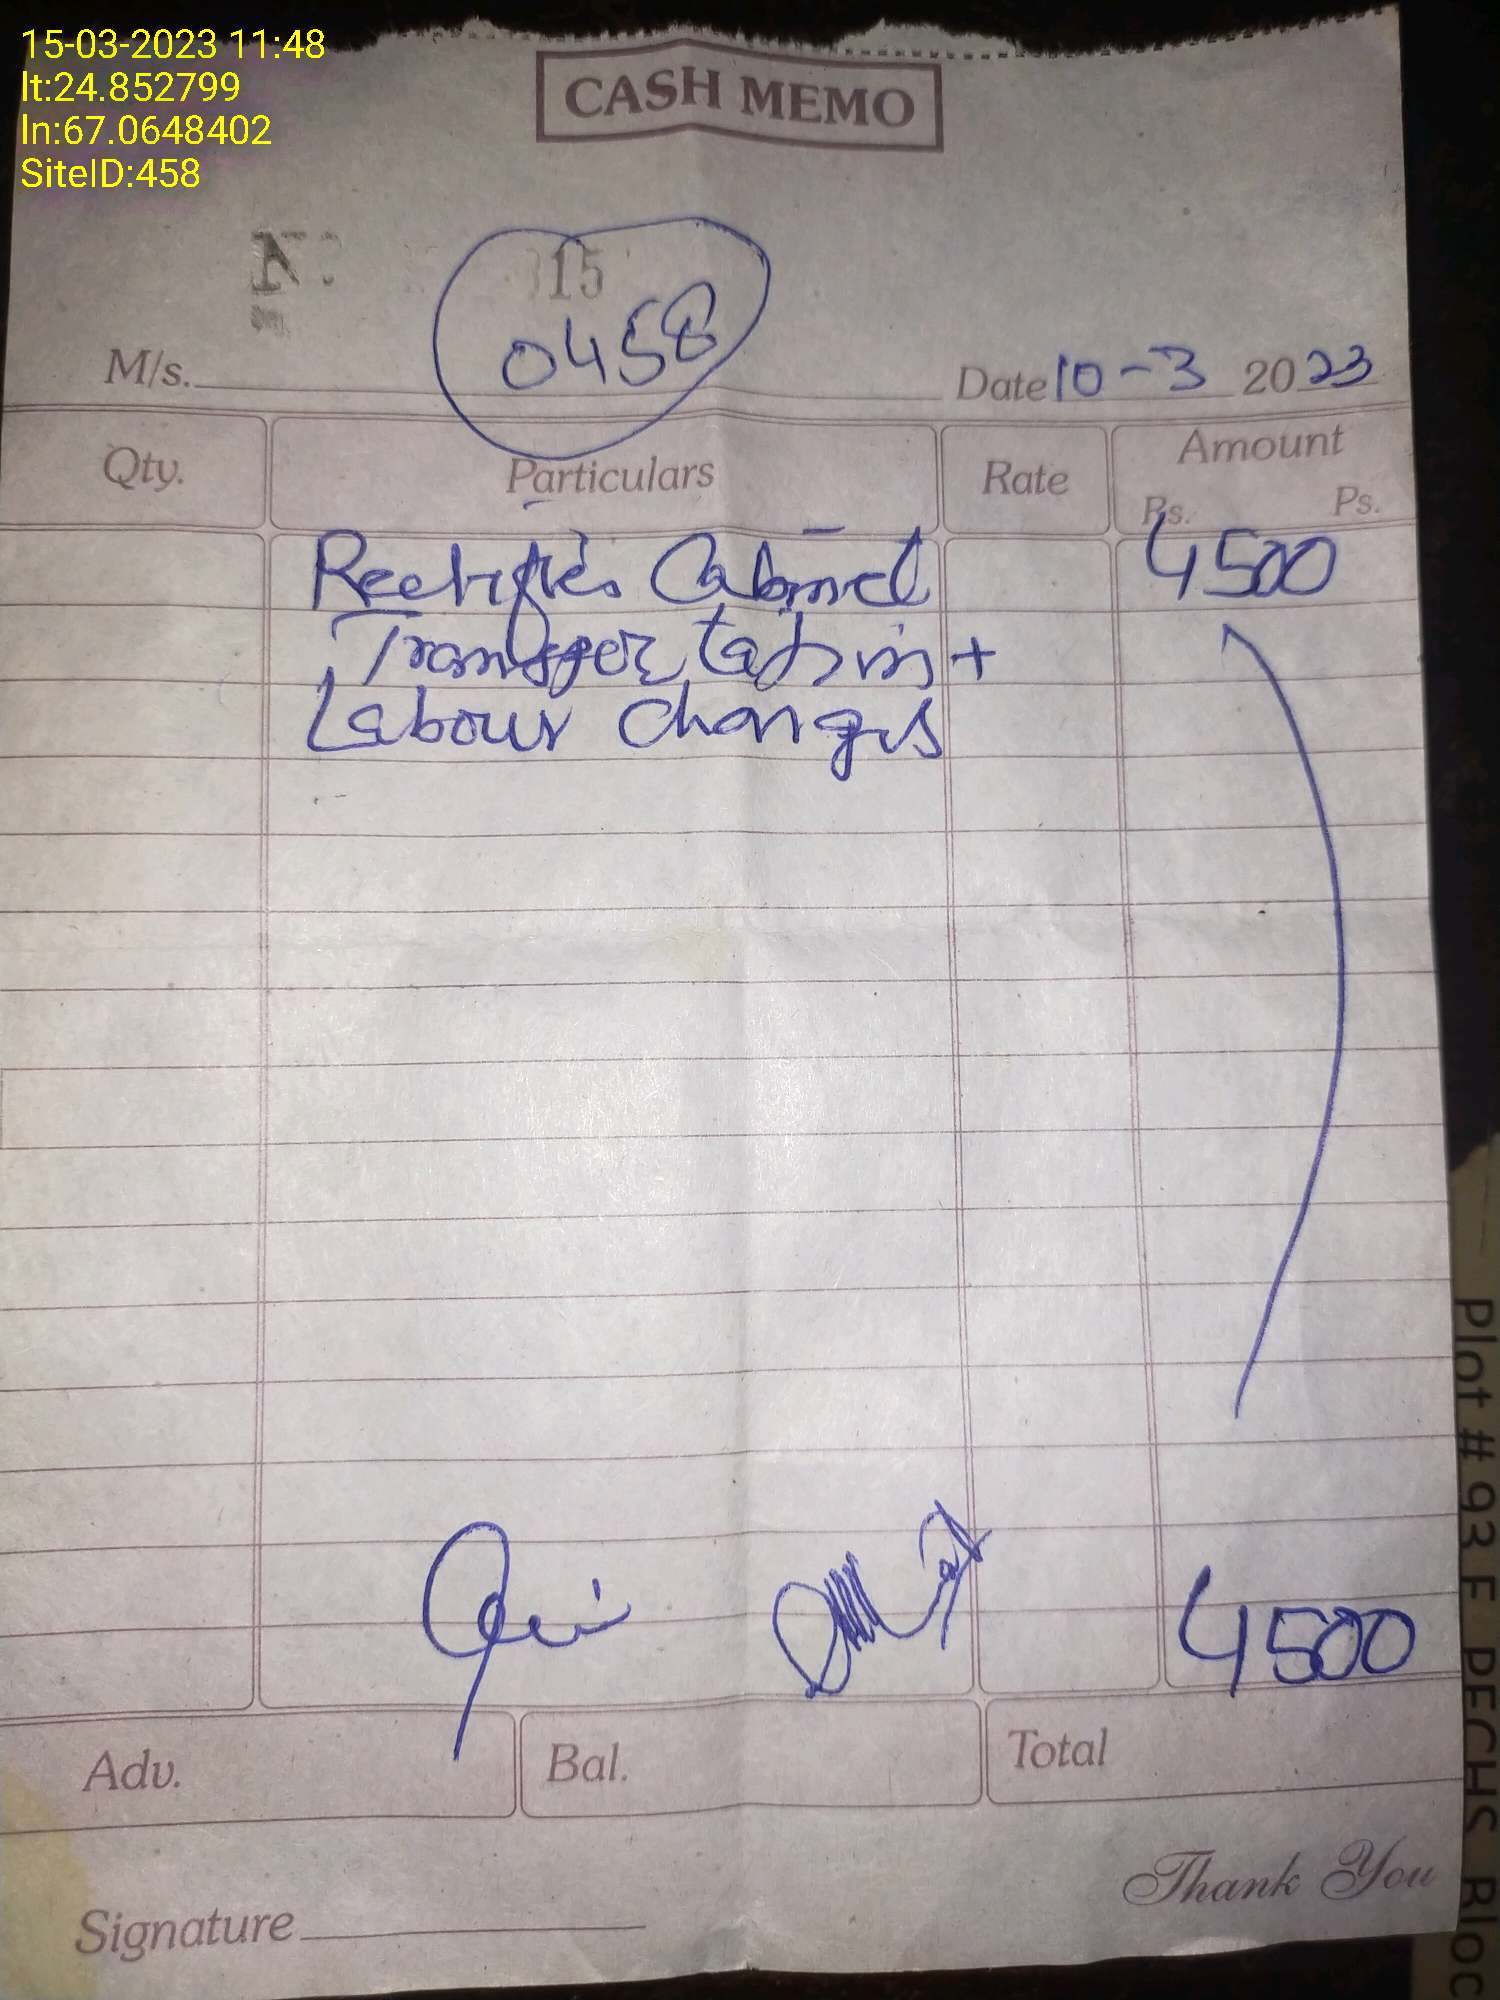 15-03-2023 11:48
lt:24.852799
ln:67.0648402
SiteID:458
CASH MEMO
15
0458
M/s.
Date 10-3 2023
Qty. Particulars Rate Amount
Rs. Ps.
Rectifier Cabinet 4500
Transportation +
Labour charges
4500
Adv. Bal. Total
Thank You
Signature
Plot # 93 F PECHS Bloc